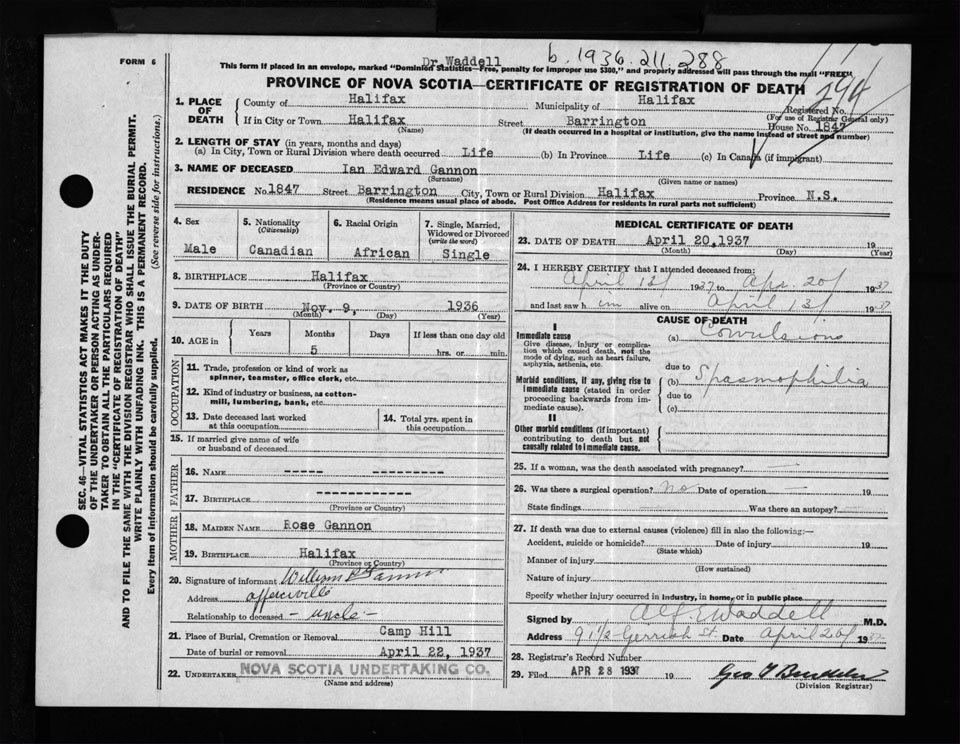 b. 1936. 211. 288
FORM 6
Dr. Waddell
This form if placed in an envelope, marked "Dominion Statistics—Free, penalty for improper use $300," and properly addressed will pass through the mail "FREE"
PROVINCE OF NOVA SCOTIA—CERTIFICATE OF REGISTRATION OF DEATH
1. PLACE OF DEATH
County of Halifax Municipality of Halifax Registered No.
(For use of Registrar General only)
If in City or Town Halifax Street Barrington House No. 1847
(Name) (If death occurred in a hospital or institution, give the name instead of street and number)
2. LENGTH OF STAY (in years, months and days)
(a) In City, Town or Rural Division where death occurred Life (b) In Province Life (c) In Canada (if immigrant)
3. NAME OF DECEASED Ian Edward Gannon
(Surname) (Given name or names)
RESIDENCE No. 1847 Street Barrington City, Town or Rural Division Halifax Province N.S.
(Residence means usual place of abode. Post Office Address for residents in rural parts not sufficient)
4. Sex
Male
5. Nationality
(Citizenship)
Canadian
6. Racial Origin
African
7. Single, Married, Widowed or Divorced
(write the word)
Single
8. BIRTHPLACE Halifax
(Province or Country)
9. DATE OF BIRTH Nov. 9, 1936
(Month) (Day) (Year)
10. AGE in
Years Months Days If less than one day old
5 hrs. or min.
OCCUPATION
11. Trade, profession or kind of work as
spinner, teamster, office clerk, etc.
12. Kind of industry or business, as cotton-
mill, lumbering, bank, etc.
13. Date deceased last worked
at this occupation
14. Total yrs. spent in
this occupation
15. If married give name of wife
or husband of deceased
FATHER
16. NAME ----- ---------
17. BIRTHPLACE ------------
(Province or Country)
MOTHER
18. MAIDEN NAME Rose Gannon
19. BIRTHPLACE Halifax
(Province or Country)
20. Signature of informant William Gannon
Address
Relationship to deceased - uncle -
21. Place of Burial, Cremation or Removal Camp Hill
Date of burial or removal April 22, 1937
22. UNDERTAKER NOVA SCOTIA UNDERTAKING CO.
(Name and address)
MEDICAL CERTIFICATE OF DEATH
23. DATE OF DEATH April 20, 1937 19
(Month) (Day) (Year)
24. I HEREBY CERTIFY that I attended deceased from:
April 13/ 1937 to Apr. 20/ 1937
and last saw him alive on April 13/ 1937
CAUSE OF DEATH
I
Immediate cause
Give disease, injury or complication which caused death, not the mode of dying, such as heart failure, asphyxia, asthenia, etc.
(a) Convulsions
due to
Morbid conditions, if any, giving rise to immediate cause (stated in order proceeding backwards from immediate cause).
(b) Spasmophilia
due to
(c)
II
Other morbid conditions (if important) contributing to death but not causally related to immediate cause.
25. If a woman, was the death associated with pregnancy? —
26. Was there a surgical operation? No Date of operation — 19
State findings — Was there an autopsy? —
27. If death was due to external causes (violence) fill in also the following:—
Accident, suicide or homicide? Date of injury 19
(State which)
Manner of injury
(How sustained)
Nature of injury
Specify whether injury occurred in industry, in home, or in public place
Signed by Alf E Waddell M.D.
Address 91 1/2 Gerrish St. Date April 20/ 1937
28. Registrar's Record Number
29. Filed APR 28 1937 19
(Division Registrar)
SEC. 46—VITAL STATISTICS ACT MAKES IT THE DUTY
OF THE UNDERTAKER OR PERSON ACTING AS UNDER-
TAKER TO OBTAIN ALL THE PARTICULARS REQUIRED
IN THE "CERTIFICATE OF REGISTRATION OF DEATH"
AND TO FILE THE SAME WITH THE DIVISION REGISTRAR WHO SHALL ISSUE THE BURIAL PERMIT.
WRITE PLAINLY WITH UNFADING INK. THIS IS A PERMANENT RECORD.
Every item of information should be carefully supplied. (See reverse side for instructions.)